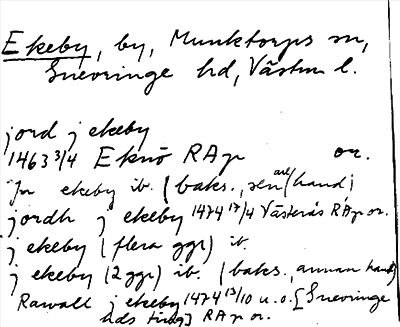 Ekeby, by, Munktorps sn,
Snevringe hd, Västm l.
jord j ekeby
1463 3/4 Eknö RAp or.
Jn ekeby ib. (baks., senare hand)
jordh j ekeby 1474 17/4 Västerås RAp or.
j ekeby (flera ggr) ib.
j ekeby (2 ggr) ib. (baks., annan hand)
Rawall j ekeby 1474 13/10 u.o. [Snevringe
hds ting] RAp or.